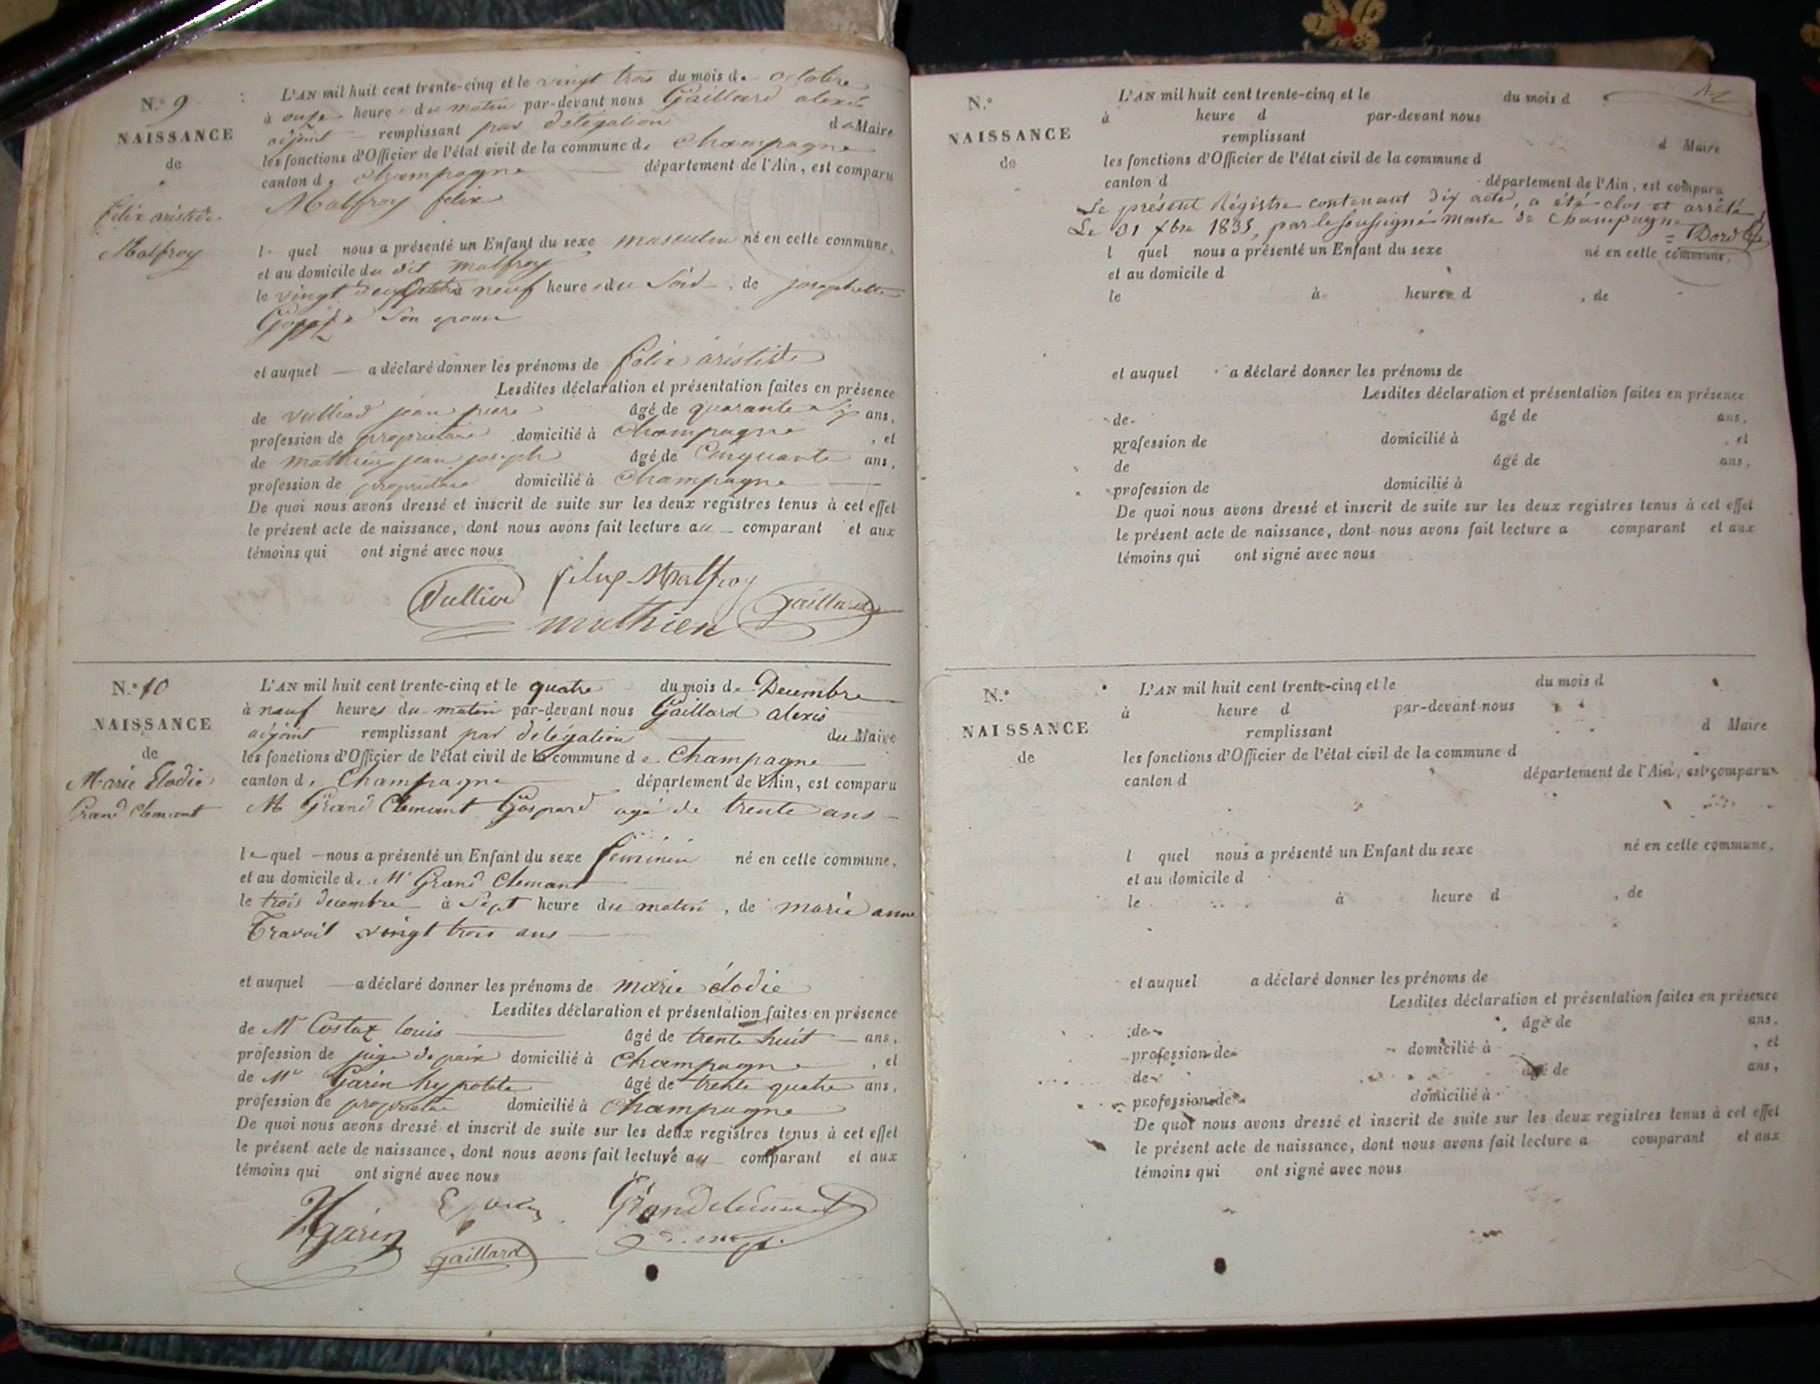 N.º 9
NAISSANCE
de
félix aristide
Malfroy
L'AN mil huit cent trente-cinq et le vingt trois du mois de octobre
à onze heure du matin par-devant nous Gaillard alexis
adjoint remplissant par délégation du Maire
les fonctions d'Officier de l'état civil de la commune de Champagne
canton de Champagne département de l'Ain, est comparu
Malfroy félix
lequel nous a présenté un Enfant du sexe masculin né en cette commune,
et au domicile du dit malfroy
le vingt deux à neuf heures du Soir, de josephette
son epouse
et auquel a déclaré donner les prénoms de félix aristide
Lesdites déclaration et présentation faites en présence
de Vulliod jean pierre âgé de quarante ans,
profession de proprietaire domicilié à Champagne, et
de mathieu jean joseph âgé de Cinquante ans,
profession de proprietaire domicilié à Champagne
De quoi nous avons dressé et inscrit de suite sur les deux registres tenus à cet effet
le présent acte de naissance, dont nous avons fait lecture au comparant et aux
témoins qui ont signé avec nous
Vulliod félix Malfroy Gaillard
mathieu
N.º 10
NAISSANCE
de
Marie Elodie
Grand Clement
L'AN mil huit cent trente-cinq et le quatre du mois de Decembre
à neuf heures du matin par-devant nous Gaillard alexis
adjoint remplissant par délégation du Maire
les fonctions d'Officier de l'état civil de la commune de Champagne
canton de Champagne département de l'Ain, est comparu
Mr Grand Clemant Gaspard agé de trente ans
lequel nous a présenté un Enfant du sexe féminin né en cette commune,
et au domicile de Mr Grand Clemant
le trois decembre à sept heure du matin, de marie anne
Travail vingt trois ans
et auquel a déclaré donner les prénoms de marie élodie
Lesdites déclaration et présentation faites en présence
de Mr Costaz louis âgé de trente huit ans,
profession de juge de paix domicilié à Champagne, et
de Mr Garin hypolite âgé de trente quatre ans,
profession de proprietaire domicilié à Champagne
De quoi nous avons dressé et inscrit de suite sur les deux registres tenus à cet effet
le présent acte de naissance, dont nous avons fait lecture au comparant et aux
témoins qui ont signé avec nous
H garin Grandclement
gaillard
N.º
NAISSANCE
de
L'AN mil huit cent trente-cinq et le du mois d
à heure d par-devant nous
remplissant d Maire
les fonctions d'Officier de l'état civil de la commune d
canton d département de l'Ain, est comparu
Le présent Régistre contenant dix actes, a été clos et arrêté
Le 31 Xbre 1835, par le soussigné Maire de Champagne
l quel nous a présenté un Enfant du sexe né en cette commune,
et au domicile d
le à heure d , de
et auquel a déclaré donner les prénoms de
Lesdites déclaration et présentation faites en présence
de âgé de ans,
profession de domicilié à , et
de âgé de ans,
profession de domicilié à
De quoi nous avons dressé et inscrit de suite sur les deux registres tenus à cet effet
le présent acte de naissance, dont nous avons fait lecture a comparant et aux
témoins qui ont signé avec nous
N.º
NAISSANCE
de
L'AN mil huit cent trente-cinq et le du mois d
à heure d par-devant nous
remplissant d Maire
les fonctions d'Officier de l'état civil de la commune d
canton d département de l'Ain, est comparu
l quel nous a présenté un Enfant du sexe né en cette commune,
et au domicile d
le à heure d , de
et auquel a déclaré donner les prénoms de
Lesdites déclaration et présentation faites en présence
de âgé de ans,
profession de domicilié à , et
de âgé de ans,
profession de domicilié à
De quoi nous avons dressé et inscrit de suite sur les deux registres tenus à cet effet
le présent acte de naissance, dont nous avons fait lecture a comparant et aux
témoins qui ont signé avec nous